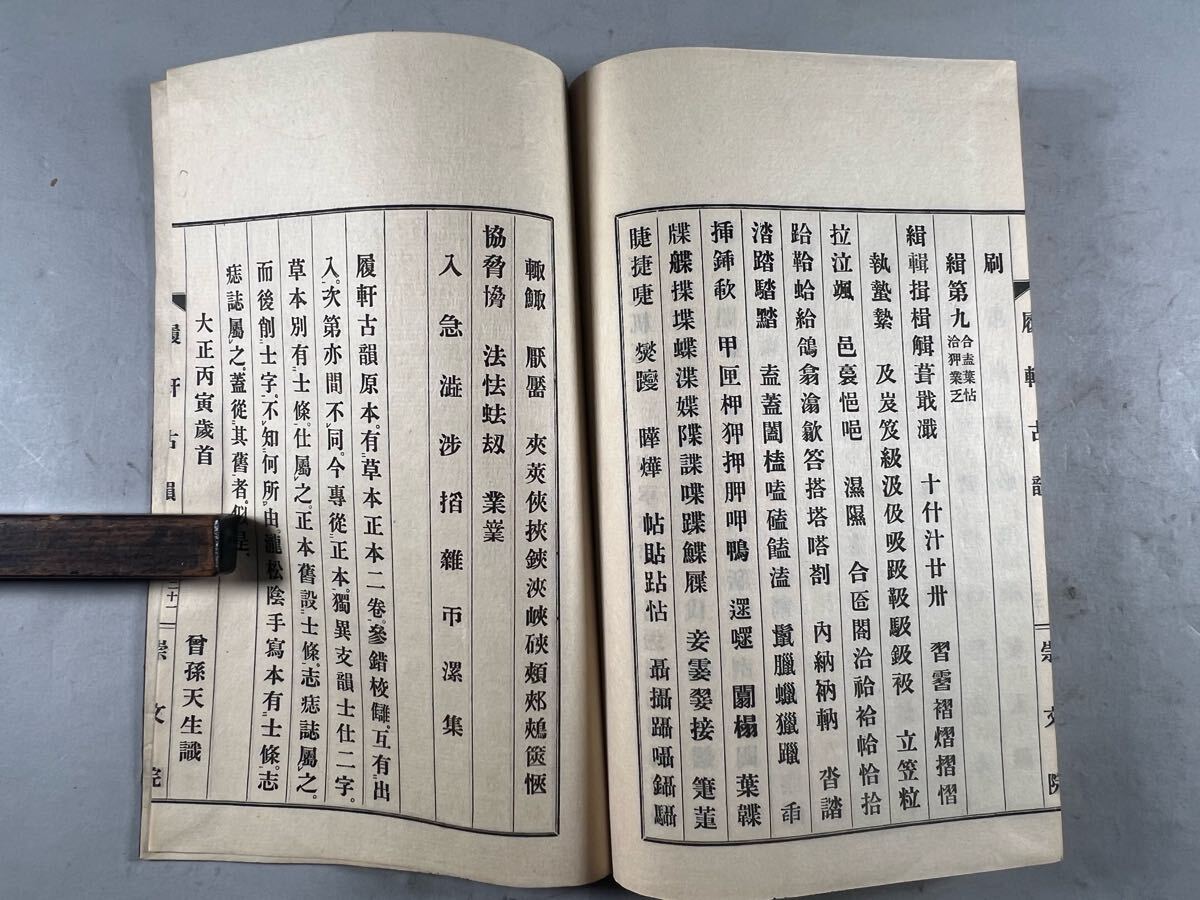 刷
緝第九 合盍葉怗洽狎業乏
緝輯揖楫艥葺戢濈 十什汁廿卅 習霫褶熠摺慴
執蟄縶 及岌笈級汲伋吸趿靸馺鈒衱 立笠粒
拉泣颯 邑裛悒唈 濕隰 合匼閤洽祫袷帢恰拾
跲鞈蛤給鴿翕潝歙答搭塔嗒剳 內納衲軜 沓諮
涾踏䠅黯 盍蓋闔榼嗑磕饁溘 鬣臘蠟獵躐 臿
插鍤㰱 甲匣柙狎押胛呷鴨 遝嚃 闒榻 葉韘
牒艓揲堞蝶渫媟隉諜喋蹀鰈屧 妾霎翣接 箑萐
睫捷啑 燮躞 曄燁 帖貼跕怗 聶攝躡囁鑷驦
輒鯫 厭靨 夾莢俠挾鋏浹峽硤頰郟鵊篋愜
協脅愶 法怯蚨刼 業嶪
入 急 澁 渉 搯 雜 帀 漯 集
履軒古韻原本有草本正本二卷參錯校讎互有出
入次第亦間不同今專從正本獨異支韻士仕二字
草本別有士條仕屬之正本舊設士條志痣誌屬之
而後創士字不知何所由瀧松陰手寫本有士條志
痣誌屬之蓋從其舊者似是
大正丙寅歲首 曾孫天生識
履軒古韻 崇文院
履軒古韻 崇文院